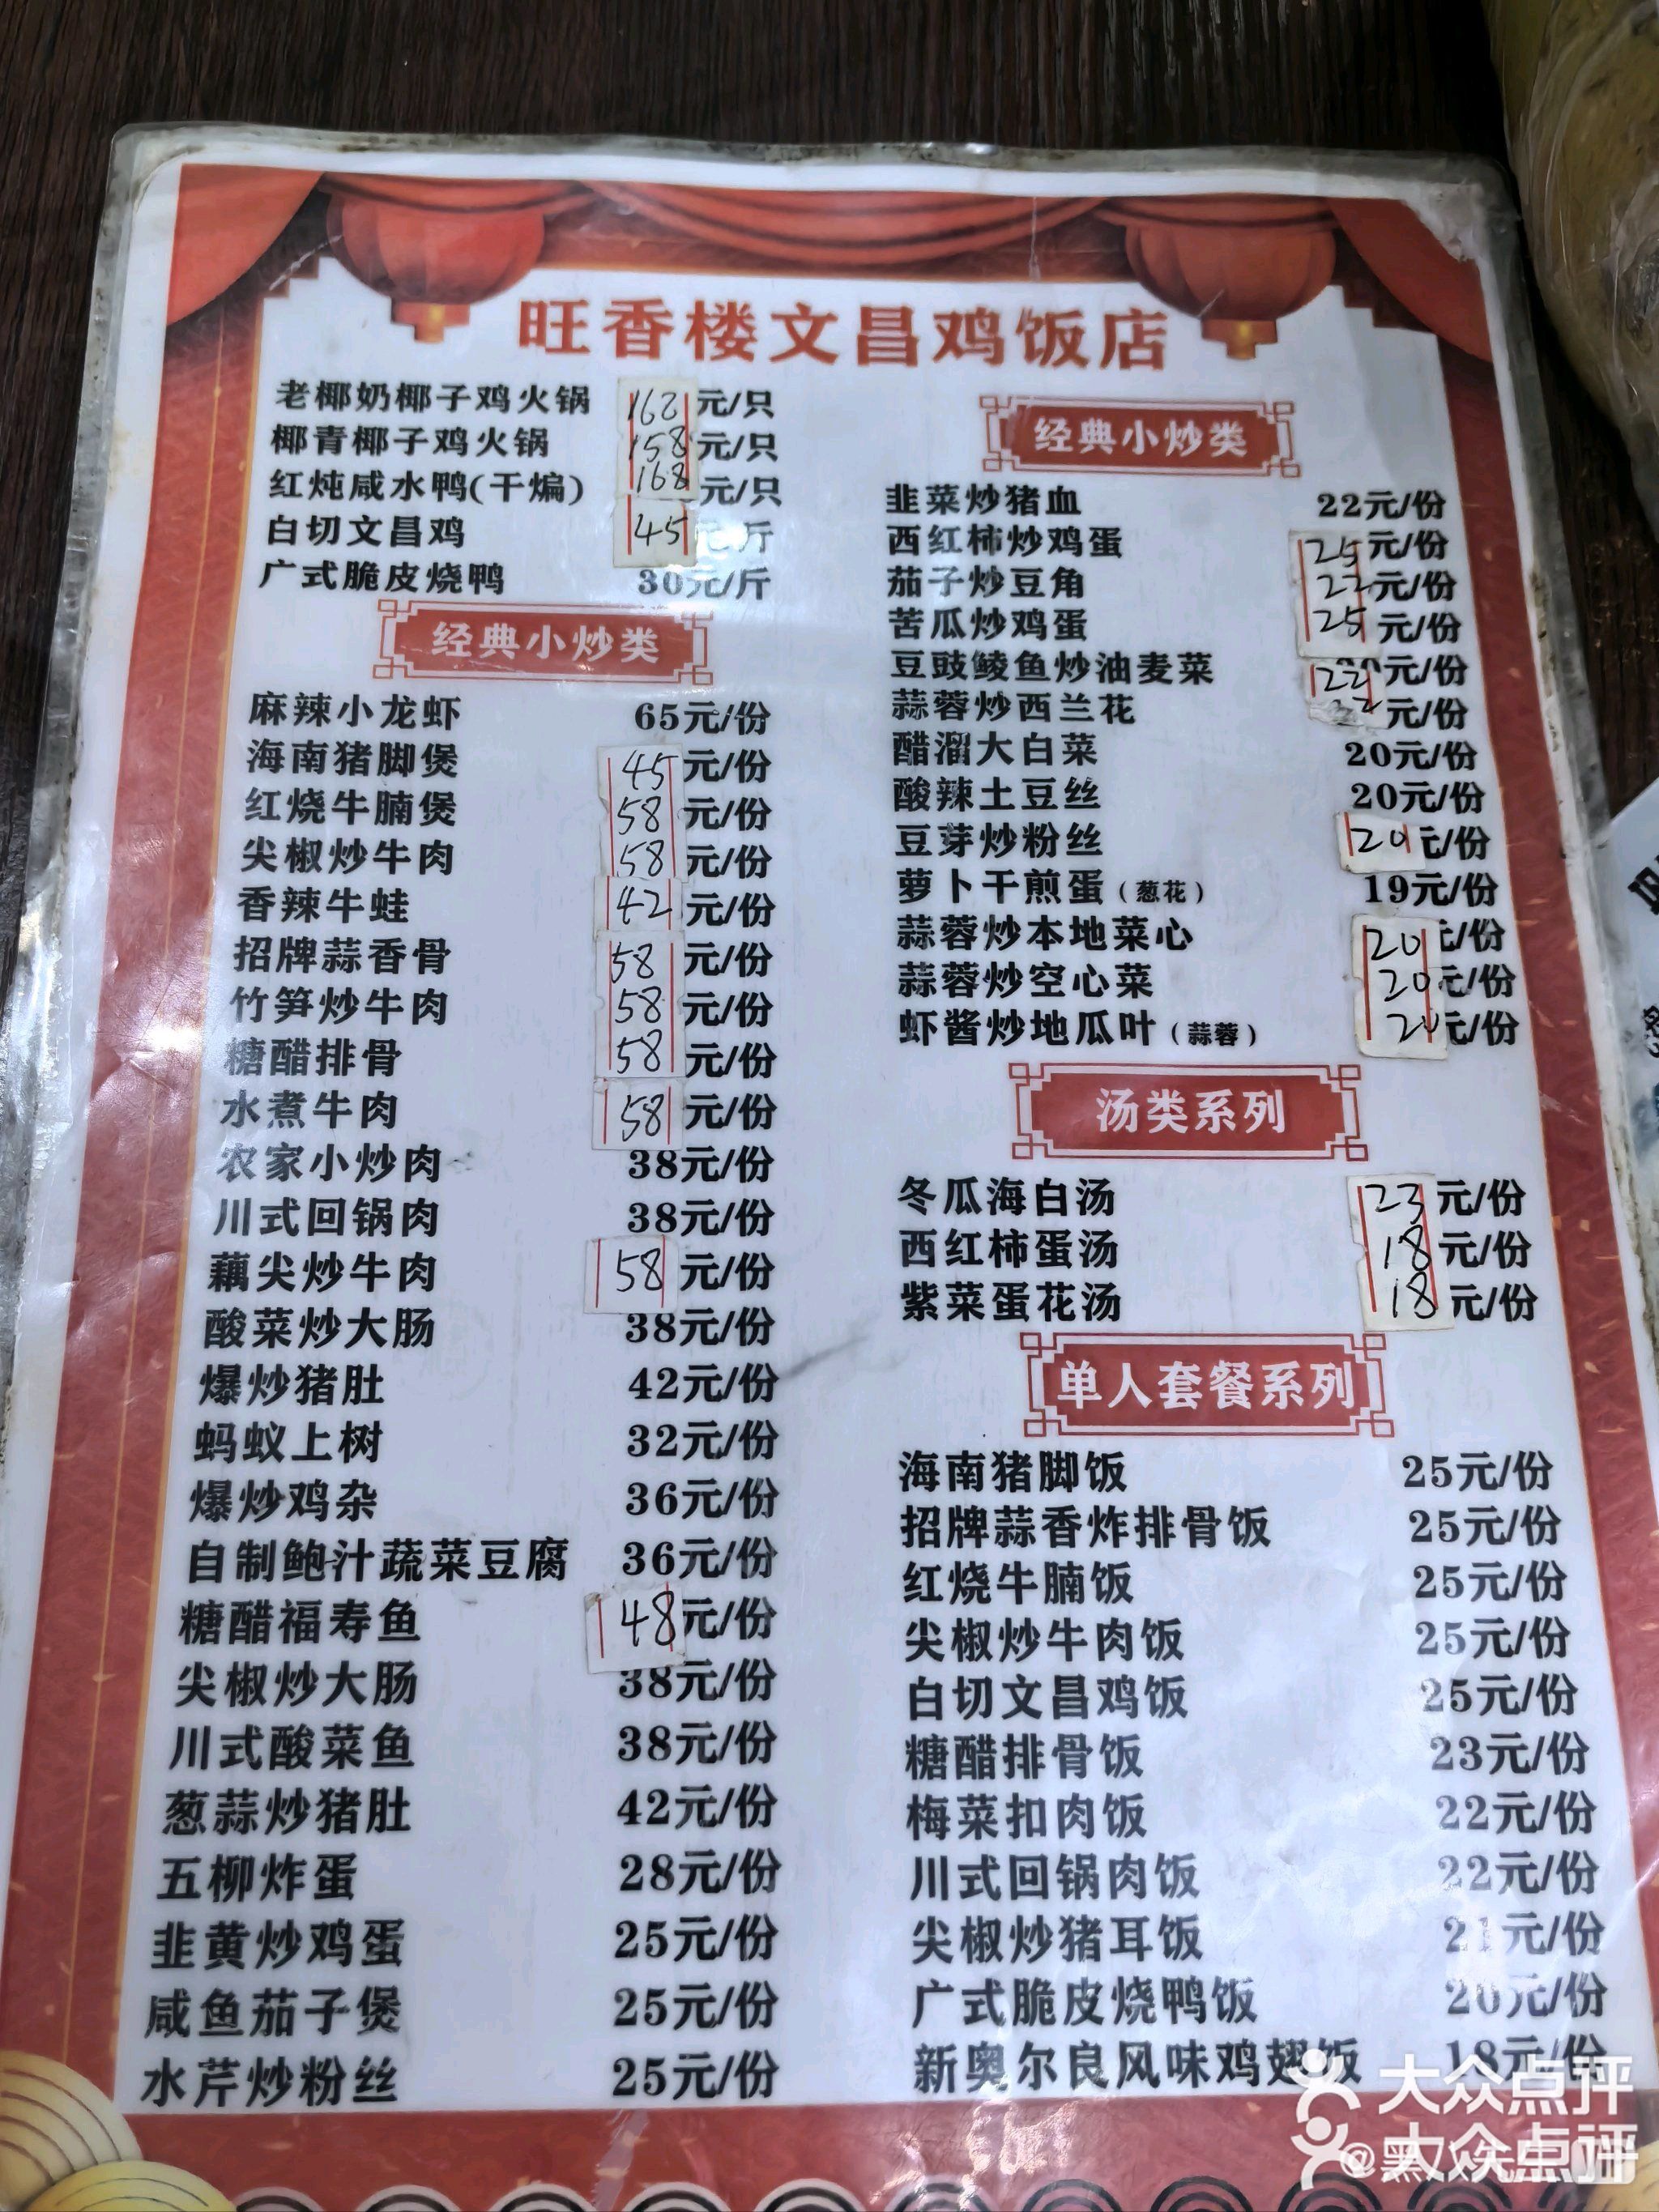 旺香楼文昌鸡饭店
老椰奶椰子鸡火锅 162元/只
椰青椰子鸡火锅 158元/只
红炖咸水鸭(干煸) 168元/只
白切文昌鸡 45元/斤
广式脆皮烧鸭 30元/斤
经典小炒类
麻辣小龙虾 65元/份
海南猪脚煲 45元/份
红烧牛腩煲 58元/份
尖椒炒牛肉 58元/份
香辣牛蛙 42元/份
招牌蒜香骨 58元/份
竹笋炒牛肉 58元/份
糖醋排骨 58元/份
水煮牛肉 58元/份
农家小炒肉 38元/份
川式回锅肉 38元/份
藕尖炒牛肉 58元/份
酸菜炒大肠 38元/份
爆炒猪肚 42元/份
蚂蚁上树 32元/份
爆炒鸡杂 36元/份
自制鲍汁蔬菜豆腐 36元/份
糖醋福寿鱼 48元/份
尖椒炒大肠 38元/份
川式酸菜鱼 38元/份
葱蒜炒猪肚 42元/份
五柳炸蛋 28元/份
韭黄炒鸡蛋 25元/份
咸鱼茄子煲 25元/份
水芹炒粉丝 25元/份
经典小炒类
韭菜炒猪血 22元/份
西红柿炒鸡蛋 25元/份
茄子炒豆角 22元/份
苦瓜炒鸡蛋 25元/份
豆豉鲮鱼炒油麦菜 22元/份
蒜蓉炒西兰花 元/份
醋溜大白菜 20元/份
酸辣土豆丝 20元/份
豆芽炒粉丝 20元/份
萝卜干煎蛋(葱花) 19元/份
蒜蓉炒本地菜心 20元/份
蒜蓉炒空心菜 20元/份
虾酱炒地瓜叶(蒜蓉) 20元/份
汤类系列
冬瓜海白汤 23元/份
西红柿蛋汤 18元/份
紫菜蛋花汤 18元/份
单人套餐系列
海南猪脚饭 25元/份
招牌蒜香炸排骨饭 25元/份
红烧牛腩饭 25元/份
尖椒炒牛肉饭 25元/份
白切文昌鸡饭 25元/份
糖醋排骨饭 23元/份
梅菜扣肉饭 22元/份
川式回锅肉饭 22元/份
尖椒炒猪耳饭 21元/份
广式脆皮烧鸭饭 20元/份
新奥尔良风味鸡翅饭 18元/份
大众点评
大众点评